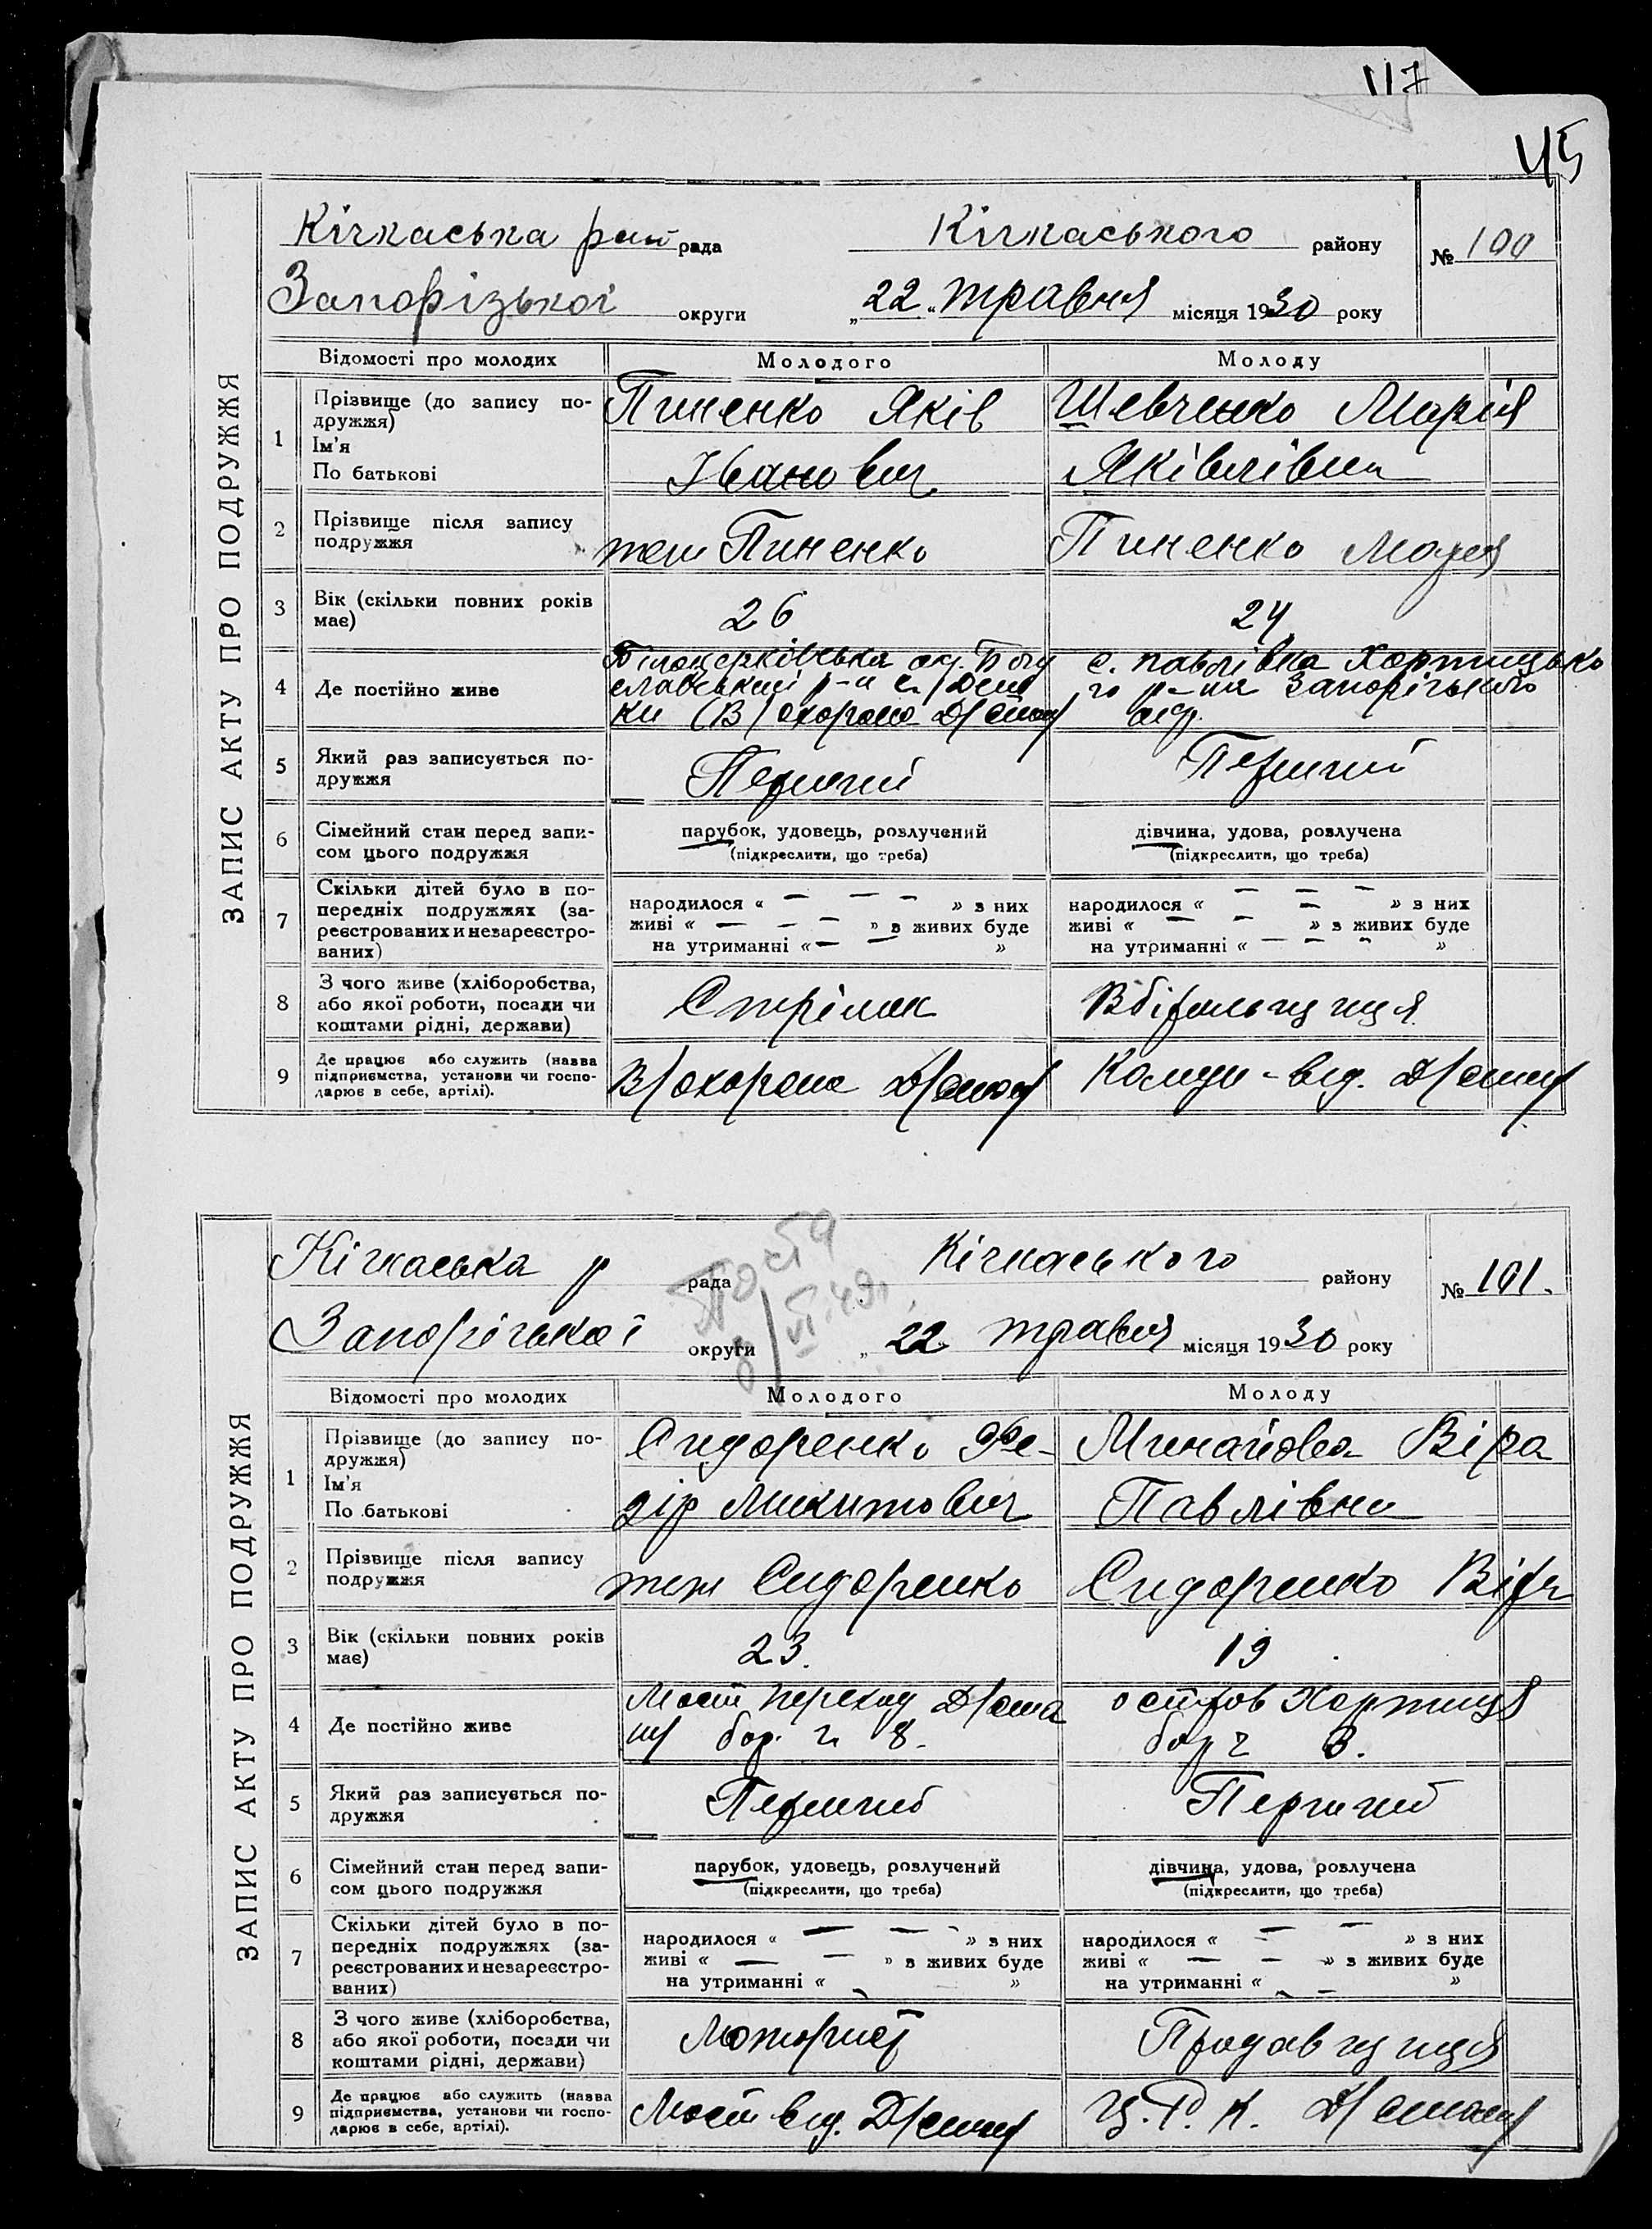 117
45
ЗАПИС АКТУ ПРО ПОДРУЖЖЯ
Кічкаська рай рада Кічкаського району № 100
Запорізької округи „22" травня місяця 1930 року
Відомості про молодих Молодого Молоду
1 Прізвище (до запису по-
дружжя)
Ім'я
По батькові
Пиненко Яків
Іванович
Шевченко Марія
Яківлівна
2 Прізвище після запису
подружжя
теж Пиненко
Пиненко Марія
3 Вік (скільки повних років
має)
26
24
4 Де постійно живе
Білоцерківська окр. Богу
славський р-н с.
ки (В/охорона Д/стану
с. Павлівка Хортицько
го р-на Запорізького
окр.
5 Який раз записується по-
дружжя
Перший
Перший
6 Сімейний стан перед запи-
сом цього подружжя
парубок, удовець, розлучений
(підкреслити, що треба)
дівчина, удова, розлучена
(підкреслити, що треба)
7 Скільки дітей було в по-
передніх подружжях (за-
реєстрованих и незареєстро-
ваних)
народилося « — — — » з них
живі « — — — » з живих буде
на утриманні « — — »
народилося « — — — » з них
живі « — — » з живих буде
на утриманні « — — — »
8 З чого живе (хліборобства,
або якої роботи, посади чи
коштами рідні, держави)
Стрілок
Вбіральниця
9 Де працює або служить (назва
підприємства, установи чи госпо-
дарює в себе, артілі).
В/охорона Д/стану
Комун-від. Д/стану
ЗАПИС АКТУ ПРО ПОДРУЖЖЯ
Кічкаська р рада Кічкаського району № 101.
Запорізької округи „22" травня місяця 1930 року
8/VI-49.
Відомості про молодих Молодого Молоду
1 Прізвище (до запису по-
дружжя)
Ім'я
По батькові
Сидоренко Фе-
дір Микитович
Минайова Віра
Павлівна
2 Прізвище після запису
подружжя
теж Сидоренко
Сидоренко Віра
3 Вік (скільки повних років
має)
23.
19
4 Де постійно живе
Мост переход Д/ста
ну бар. ч 8.
остров Хортиця
бар ч 3.
5 Який раз записується по-
дружжя
Перший
Перший
6 Сімейний стан перед запи-
сом цього подружжя
парубок, удовець, розлучений
(підкреслити, що треба)
дівчина, удова, розлучена
(підкреслити, що треба)
7 Скільки дітей було в по-
передніх подружжях (за-
реєстрованих и незареєстро-
ваних)
народилося « — — » з них
живі « — — » з живих буде
на утриманні « »
народилося « — — » з них
живі « — — » з живих буде
на утриманні « — »
8 З чого живе (хліборобства,
або якої роботи, посади чи
коштами рідні, держави)
Моторист
Продавщиця
9 Де працює або служить (назва
підприємства, установи чи госпо-
дарює в себе, артілі).
Мост від. Д/стану
Ц. Р. К. Д/стану